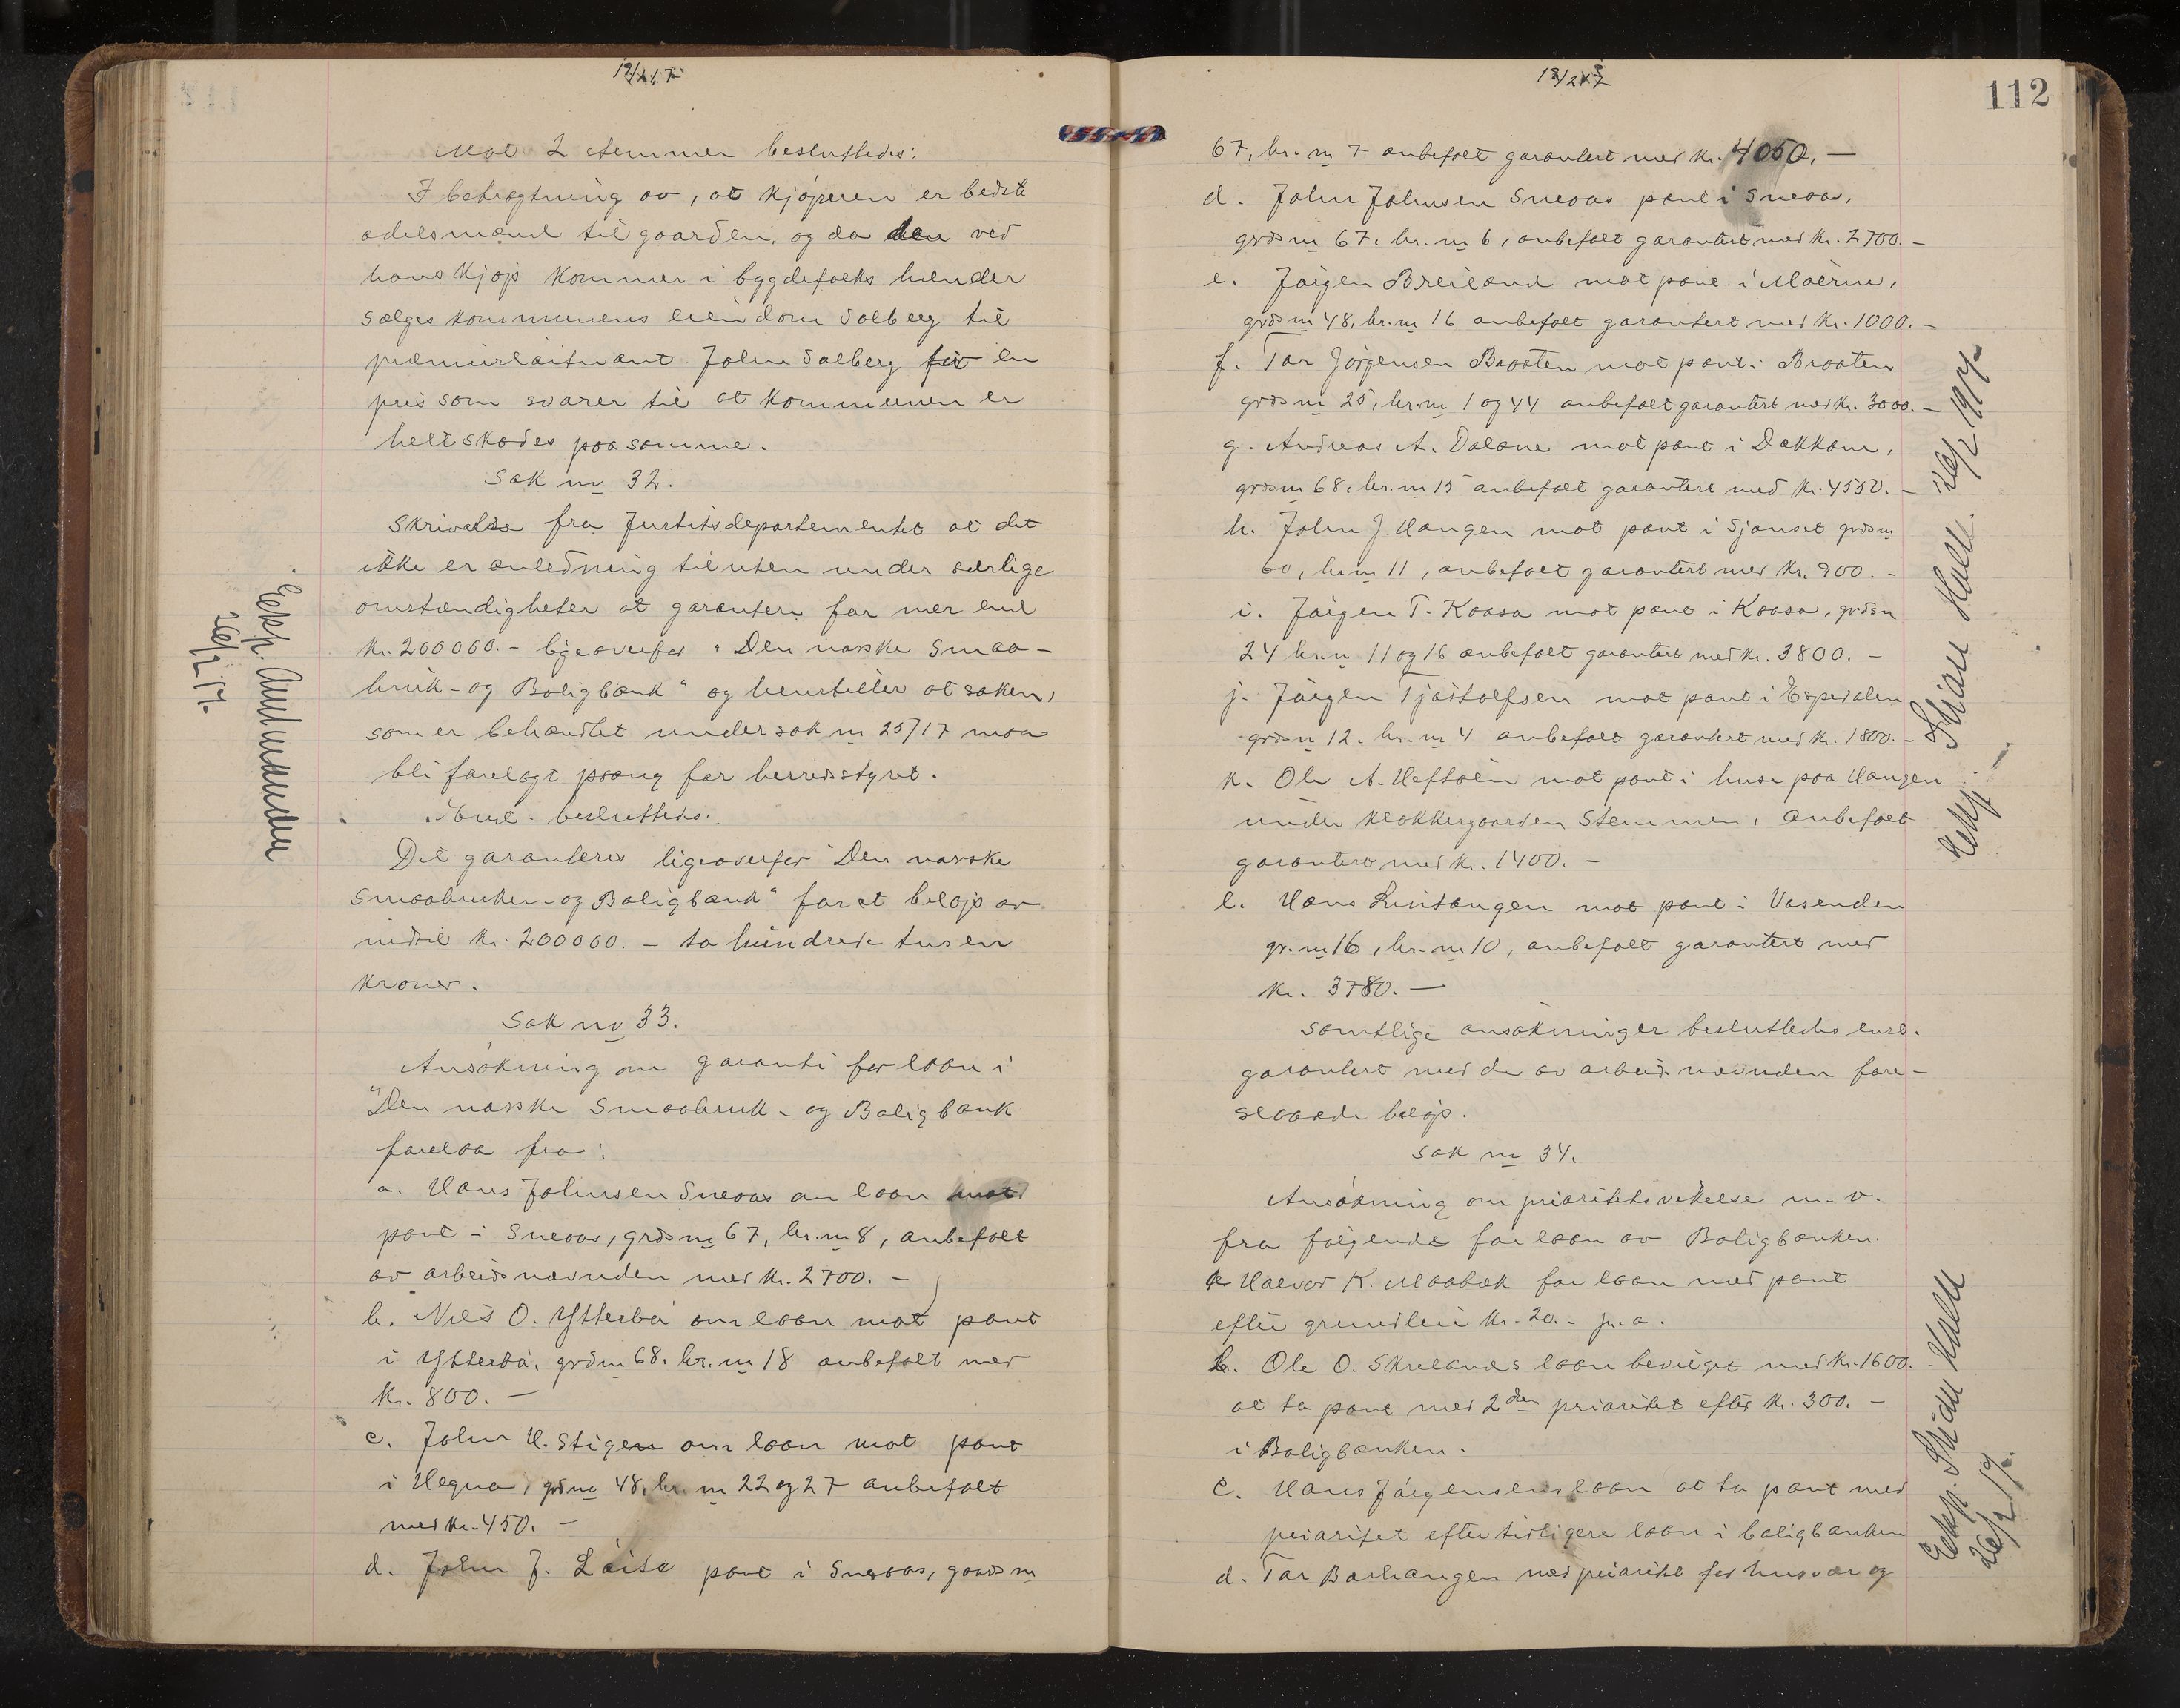 Mot 2 stemmer besluttedes:
I betragtning av, at kjøperen er bedste
odelsmand til gaarden, og da den ved
hans kjøp kommer i bygdefolks hænder
sælges kommunens eiendom Solberg til
premierløitnant John Solberg for en
pris som svarer til at kommunen er
helt skades paa samme.
Sak nr 32.
Skrivelse fra Justitsdepartementet at det
ikke er anledning til uten under særlige
omstændigheter at garantere for mer end
kr. 200000.- ligeoverfor "Den norske Smaa-
bruk- og Boligbank" og henstiller at saken,
som er behandlet under sak nr 25/17 maa
bli forelagt paany for herredsstyret.
Enst. besluttedes:
Det garanteres ligeoverfor "Den norske
Smaabruker- og Boligbank" for et beløp av
indtil kr. 200000. - to hundrede tusen
kroner.
Sak nr 33.
Ansøkning om garanti for laan i
"Den norske Smaabruk- og Boligbank
forelaa fra:
a. Hans Johnsen Sneaas om laan mot
pant i Sneaas, grdsnr 67, br.nr 8, anbefalt
av arbeidsnævnden med kr. 2700. -
b. Niels O. Ytterbø om laan mot pant
i Ytterbø, grdnr 68. br.nr 18 anbefalt med
kr. 800. -
c. John H. Stigen om laan mot pant
i Hegna, grdnr 48, br. nr 22 og 27 anbefalt
med kr. 450. -
d. John J. Løite pant i Sneaas, gaardsnr
Eksp. Amtmanden
26/2 17.
112
67, br. nr 7 anbefalt garantert med kr. 4050. —
d. John Johnsen Sneaas pant i Sneaas,
grdsnr 67. br. nr 6, anbefalt garantert med kr. 2700. -
e. Jørgen Breiland mot pant i Moerne,
grdsnr 48, br. nr 16 anbefalt garantert med kr. 1000. -
f. Tor Jörgensen Braaten mot pant i Braaten
grdsnr 25, br.nr 1 og 44 anbefalt garantert med kr. 3000. -
g. Andreas A. Dalane mot pant i Dokkane,
grdsnr 68, br. nr 15 anbefalt garantert med kr. 4550. -
h. John J. Haugen mot pant i Sjønset grdsnr
60, br.nr 11, anbefalt garantert med kr. 900. -
i. Jørgen T. Kaasa mot pant i Kaasa, grdsnr
24 br.nr 11 og 16 anbefalt garantert med kr. 3800. -
j. Jørgen Tjøstolfsen mot pant i Espedalen
grdsnr 12. br. nr 4 anbefalt garantert med kr. 1800. -
k. Ole A. Heftøen mot pant i huse paa Haugen
under Klokkergaarden Stemmen, anbefalt
garantert med kr. 1400. -
l. Hans Lintangen mot pant i Vasenden
gr. nr 16, br. nr 10, anbefalt garantert med
kr. 3780. —
Samtlige ansøkninger besluttedes enst.
garantert med de av arbeidsnævnden fore-
slaaede beløp.
Sak nr 34.
Ansøkning om prioritetsvikelse m. v.
fra følgende for laan av Boligbanken.
a. Halvor K. Moabæk for laan med pant
efter grundleie kr. 20. - pr. a.
b. Ole O. Skrelands laan bevilget med kr. 1600.
at ta pant med 2den prioritet efter kr. 300. -
i Boligbanken.
c. Hans Jørgensens laan at ta pant med
prioritet efter tidligere laan i boligbanken
d. Tor Borhaugen med prioritet for husvær og
26/2 1917.
Eksp. Skien
26/2 17.